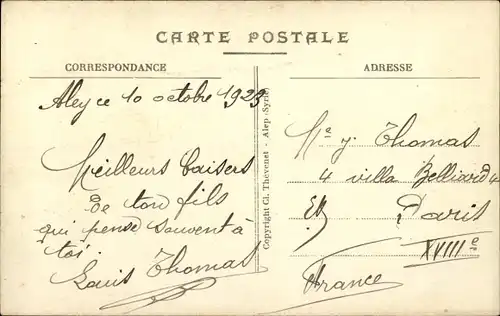 CARTE POSTALE
CORRESPONDANCE
Aley ce 10 octobre 1923
Meilleurs baisers
de ton fils
qui pense souvent à
toi.
Louis Thomas
Copyright Cl. Thévenet - Alep (Syrie)
ADRESSE
Me y. Thomas
4 villa Belliard
Paris
XVIIIe
France